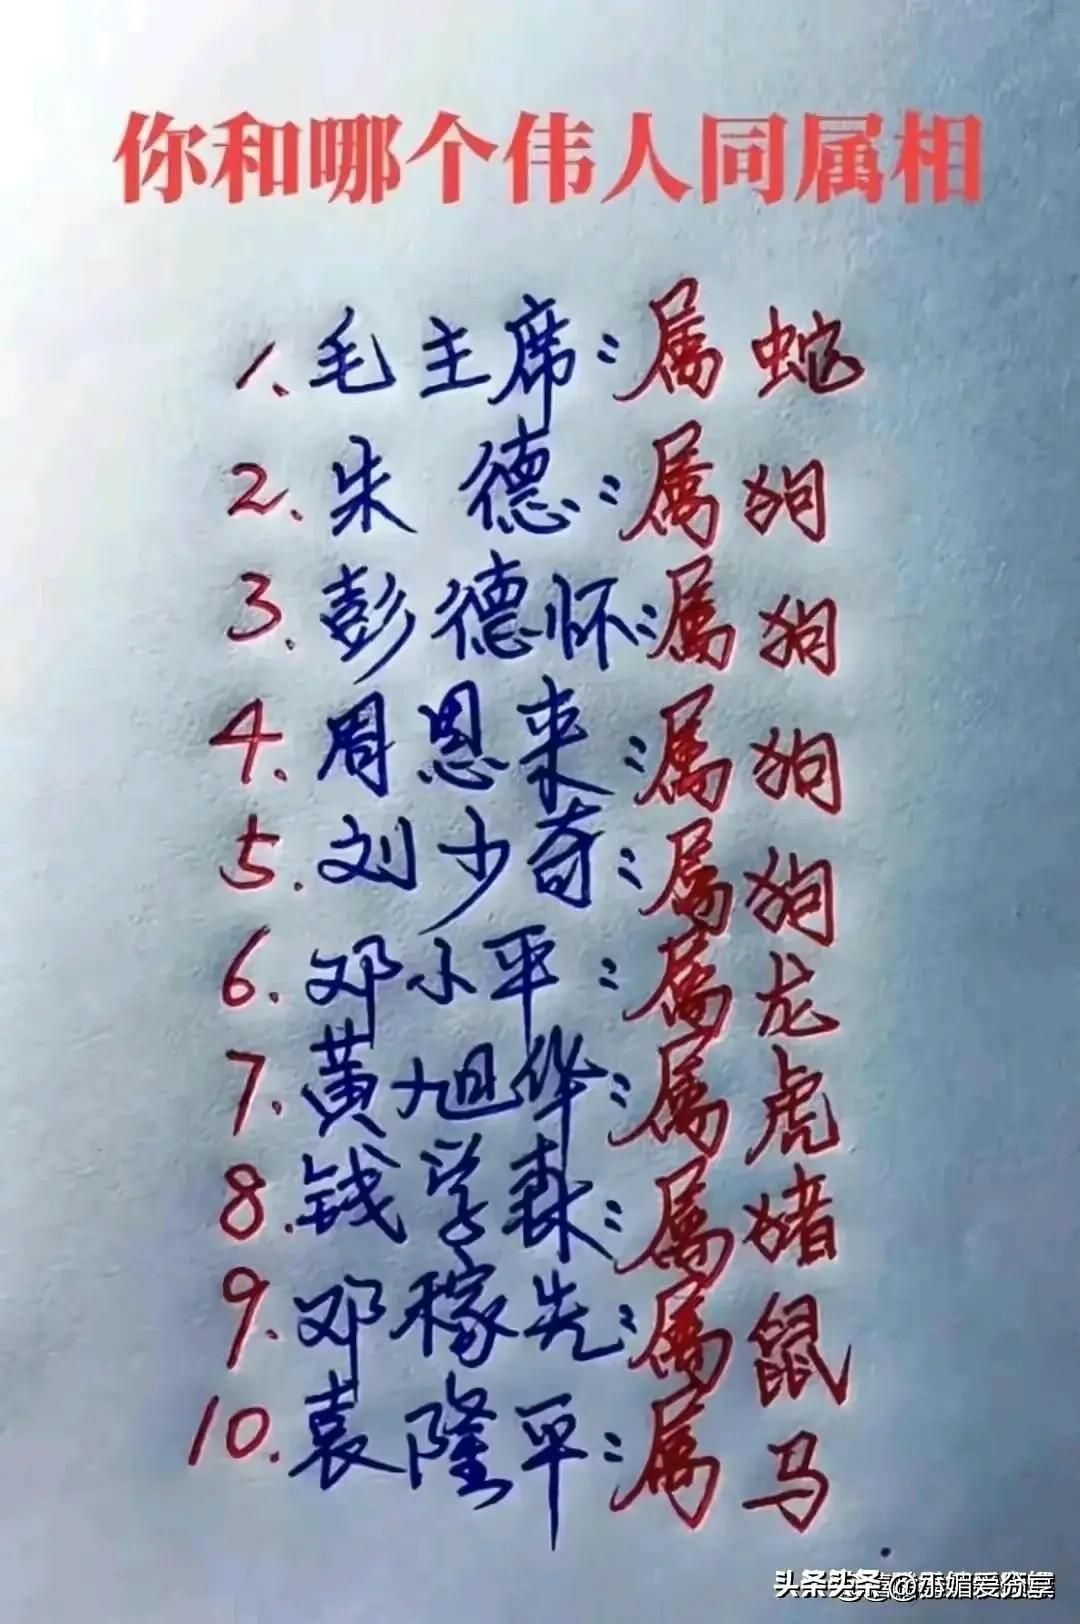 你和哪个伟人同属相
1、毛主席:属蛇
2.朱德:属狗
3.彭德怀:属狗
4.周恩来:属狗
5.刘少奇:属狗
6.邓小平:属龙
7.黄旭华:属虎
8.钱学森:属猪
9.邓稼先:属鼠
10.袁隆平:属马
头条